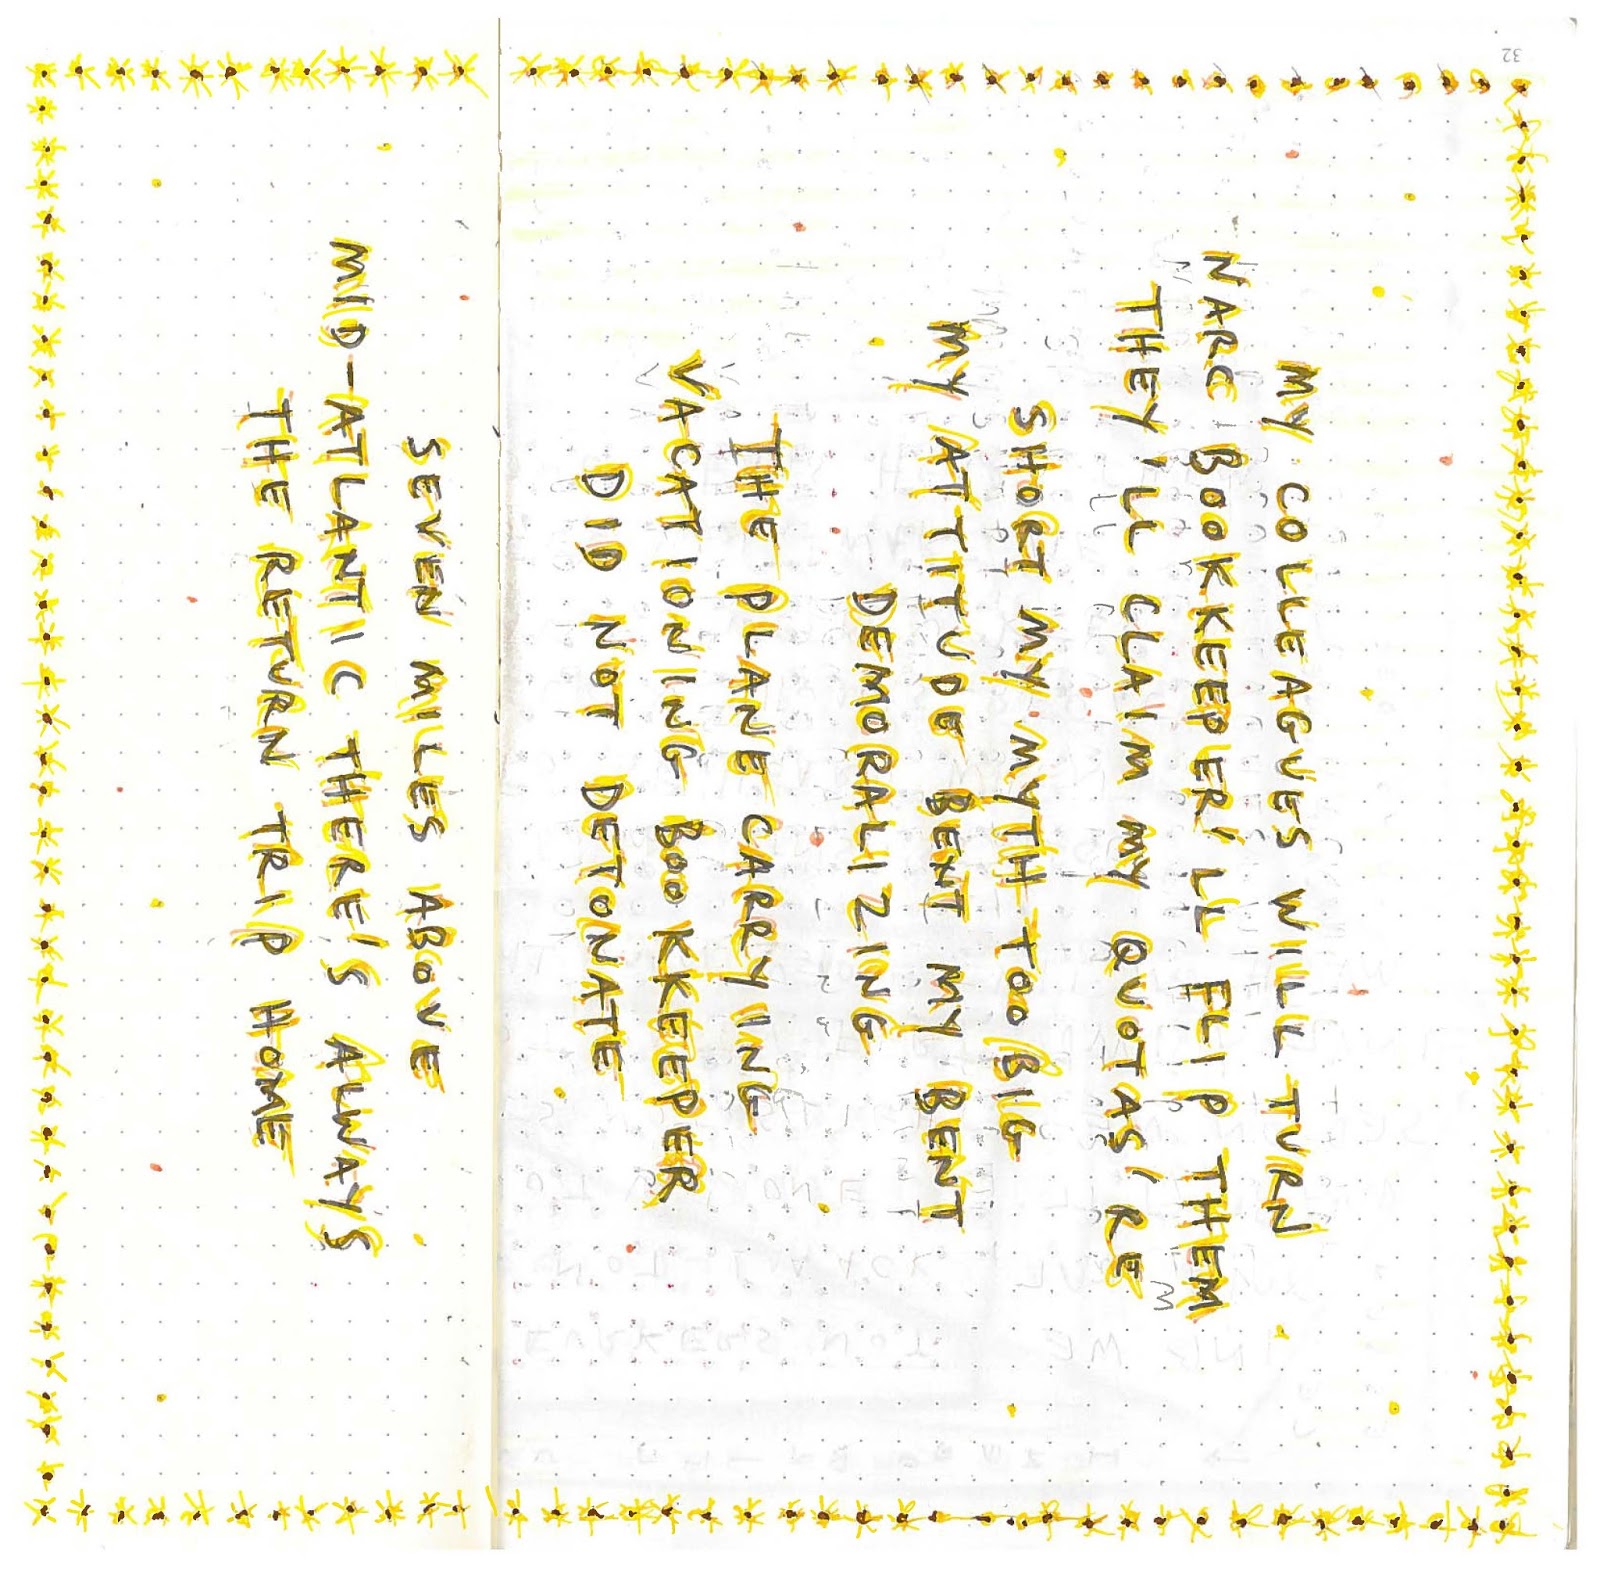 MY COLLEAGUES WILL TURN
NARC BOOKKEEPER'LL FLIP THEM
THEY'LL CLAIM MY QUOTAS'RE
SHORT MY MYTH TOO BIG
MY ATTITUDE BENT MY BENT
DEMORALIZING
THE PLANE CARRYING
VACATIONING BOOKKEEPER
DID NOT DETONATE
SEVEN MILES ABOVE
MID-ATLANTIC THERE'S ALWAYS
THE RETURN TRIP HOME
32